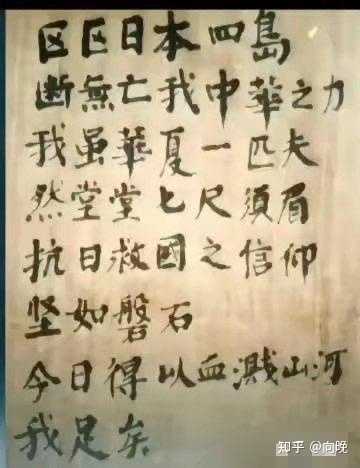 区区日本四島
断無亡我中華之力
我虽華夏一匹夫
然堂堂七尺須眉
抗日救國之信仰
坚如磐石
今日得以血溅山河
我足矣
知乎 @向晚